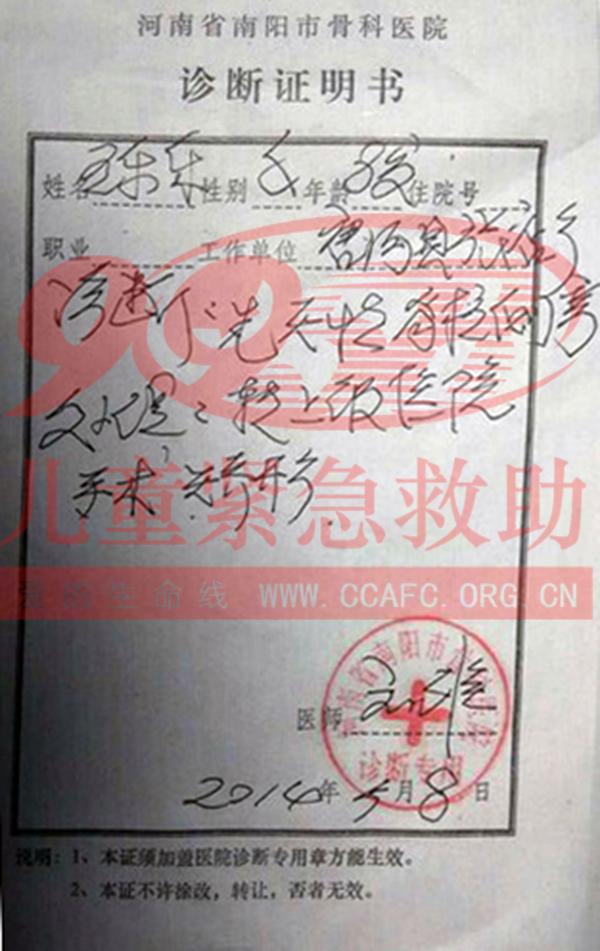 河南省南阳市骨科医院
诊断证明书
姓名 性别 女 年龄 3岁 住院号
职业 工作单位 唐河县
诊断：先天性脊柱侧弯
处理：转上级医院
手术 矫形
998
儿童紧急救助
爱的生命线 WWW.CCAFC.ORG.CN
河南省南阳市骨科医院
诊断专用
医师
2014年5月8日
说明：1、本证须加盖医院诊断专用章方能生效。
2、本证不许涂改，转让，否者无效。